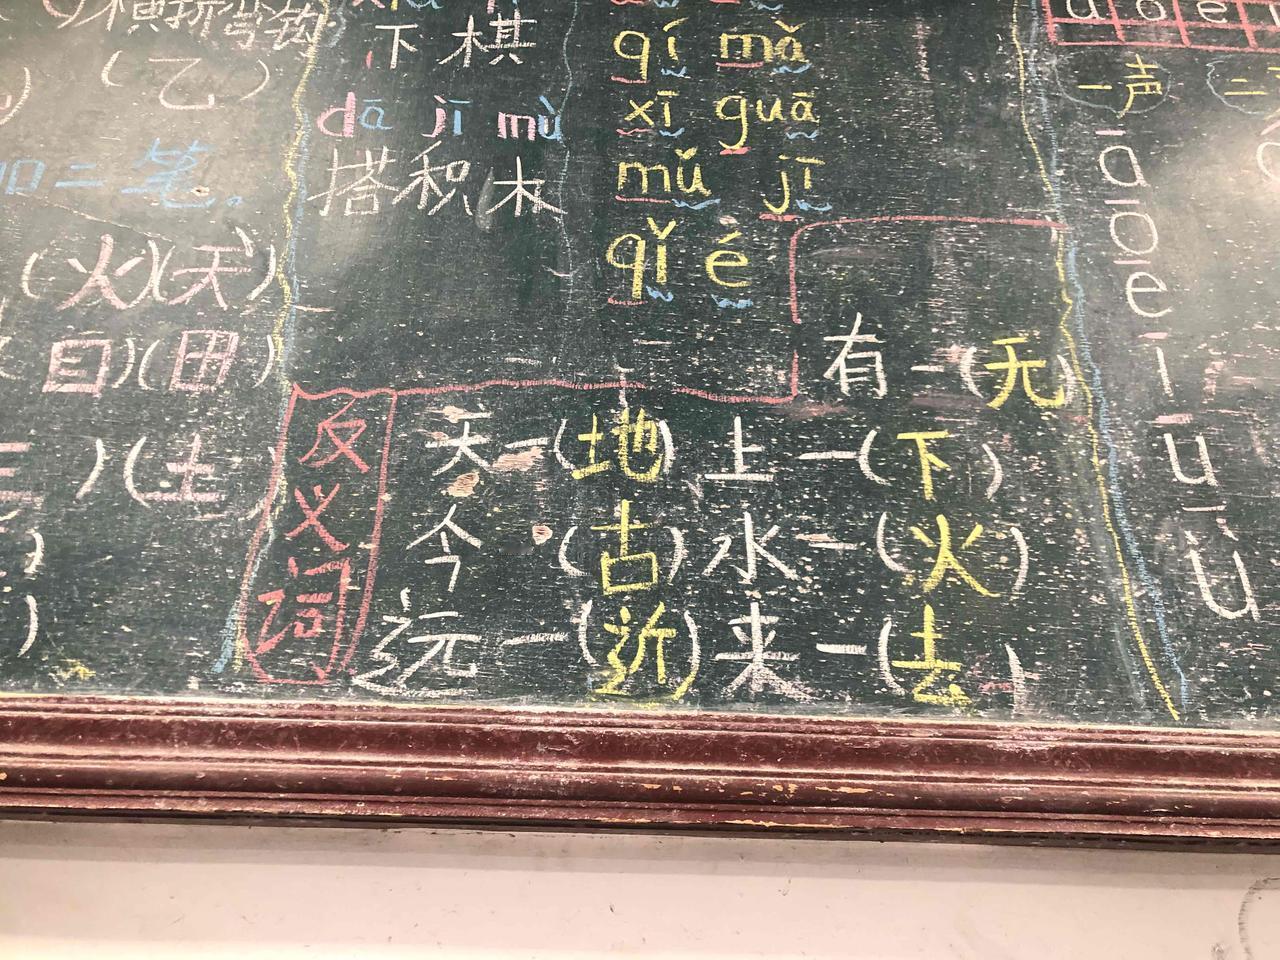 横折弯钩
(乙)
加一笔。
(火)(天)
(日)(田)
(土)
下棋
dā jī mù
搭积木
qí mǎ
xī guā
mǔ jī
qǐ é
反义词
有—(无)
天—(地) 上—(下)
今 (古) 水—(火)
远—(近) 来—(去)
ɑ o e i
一声 二
ā
ō
ē
ī
ū
ǖ